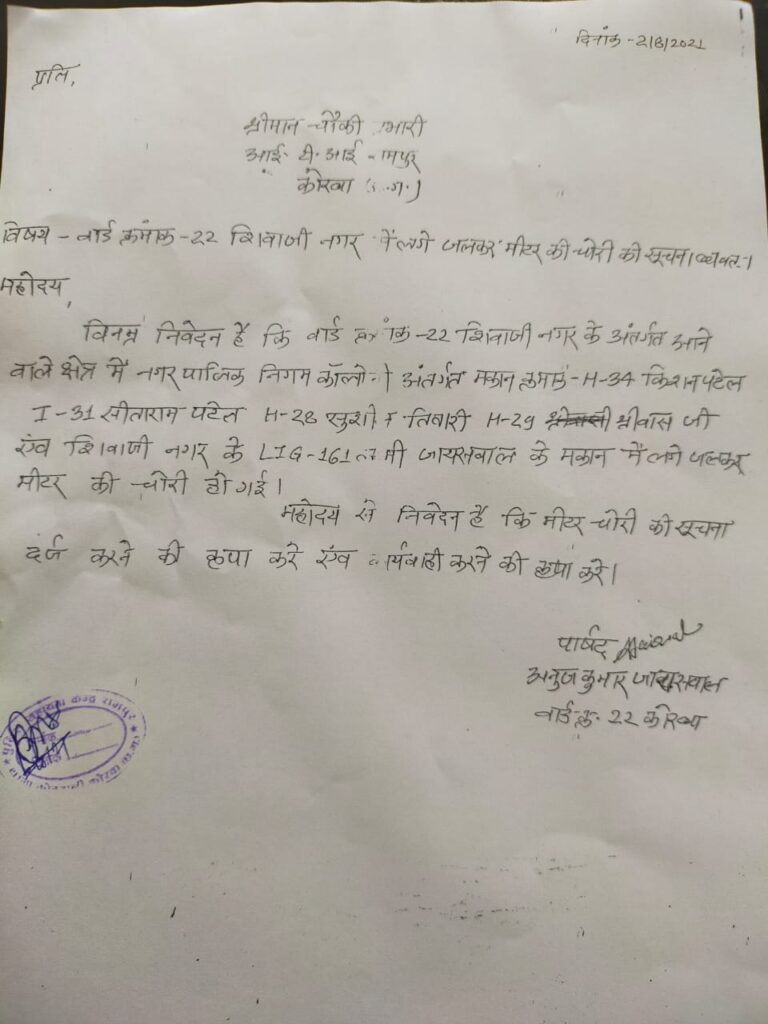 दिनांक - 2/8/2021
प्रति,
श्रीमान चौकी भारी
आई. टी. आई मपुर
कोरबा ( . ग.)
विषय - वार्ड क्रमांक - 22 शिवाजी नगर में लगे जलकर मीटर की चोरी की सूचना
महोदय,
विनम्र निवेदन है कि वार्ड क्र ांक - 22 शिवाजी नगर के अंतर्गत आने
वाले क्षेत्र में नगर पालिक निगम कॉलो ी अंतर्गत मकान क्रमांक - H-34 किशन पटेल
I-31 सीताराम पटेल H-28 तिवारी H-29 श्रीवास जी
एंव शिवाजी नगर के LIG-161 जायसवाल के मकान में लगे जलकर
मीटर की चोरी हो गई।
महोदय से निवेदन है कि मीटर चोरी की सूचना
दर्ज करने की कृपा करे एंव ार्यवाही करने की कृपा करे।
पार्षद
अनुज कुमार जायसवाल
वार्ड क्र. 22 कोरबा
सहायता केन्द्र रामपुर